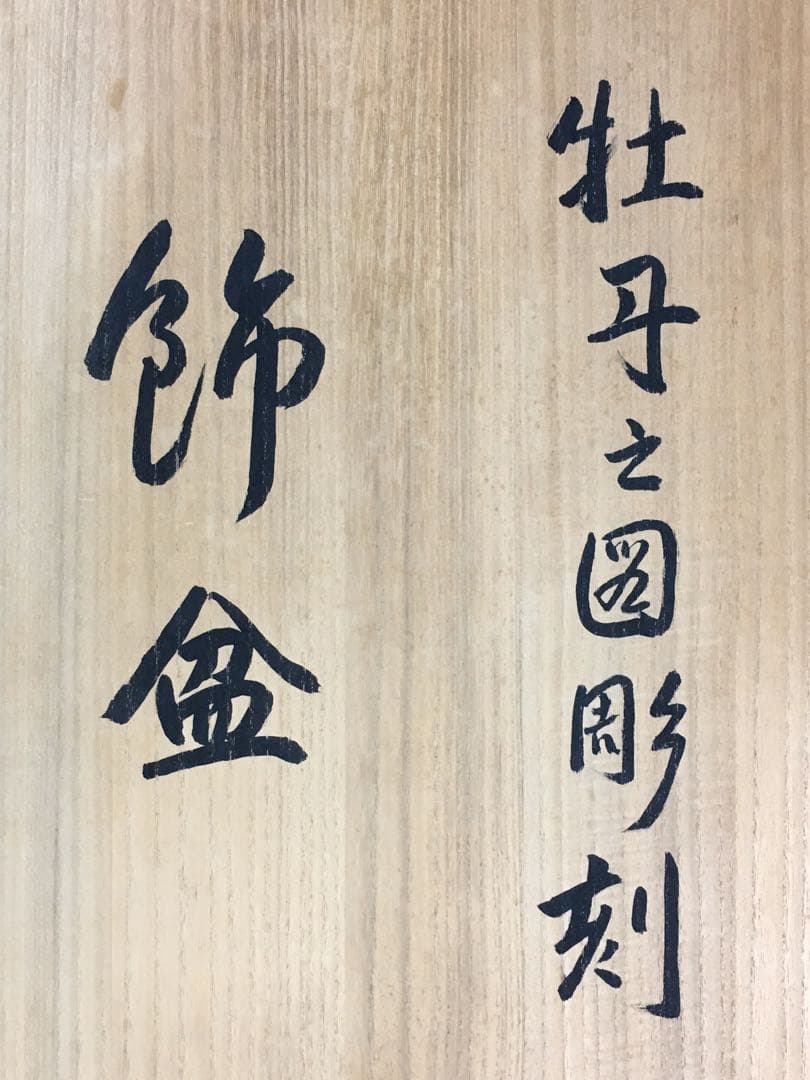 牡丹之圖彫刻
飾盆